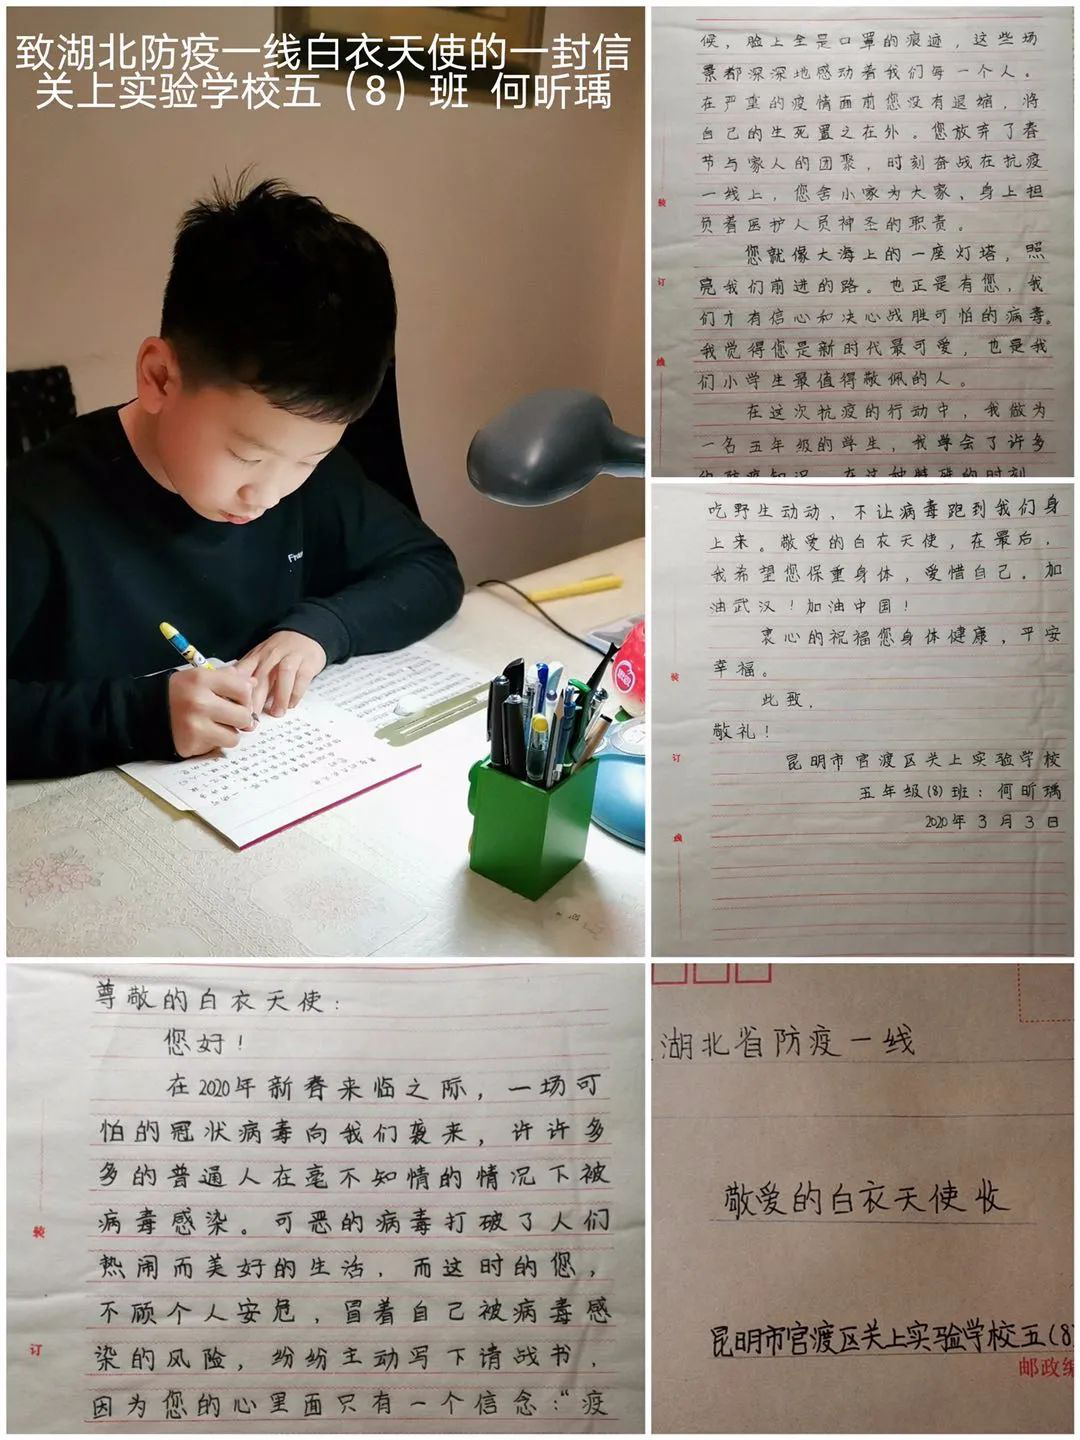 致湖北防疫一线白衣天使的一封信
关上实验学校五（8）班 何昕瑀
候，脸上全是口罩的痕迹，这些场
景都深深地感动着我们每一个人。
在严重的疫情面前您没有退缩，将
自己的生死置之在外。您放弃了春
节与家人的团聚，时刻奋战在抗疫
一线上，您舍小家为大家、身上担
负着医护人员神圣的职责。
您就像大海上的一座灯塔，照
亮我们前进的路。也正是有您，我
们才有信心和决心战胜可怕的病毒。
我觉得您是新时代最可爱，也是我
们小学生最值得敬佩的人。
在这次抗疫的行动中，我做为
一名五年级的学生，我学会了许多
的防疫知识，在这种特殊的时刻
装
订
线
吃野生动动、不让病毒跑到我们身
上来。敬爱的白衣天使，在最后，
我希望您保重身体，爱惜自己。加
油武汉！加油中国！
衷心的祝福您身体健康，平安
幸福。
此致，
敬礼！
昆明市官渡区关上实验学校
五年级(8)班：何昕瑀
2020年3月3日
装
订
线
尊敬的白衣天使：
您好！
在2020年新春来临之际，一场可
怕的冠状病毒向我们袭来，许许多
多的普通人在毫不知情的情况下被
病毒感染。可恶的病毒打破了人们
热闹而美好的生活，而这时的您，
不顾个人安危，冒着自己被病毒感
染的风险，纷纷主动写下请战书，
因为您的心里面只有一个信念：“疫
装
订
湖北省防疫一线
敬爱的白衣天使 收
昆明市官渡区关上实验学校五(8)
邮政编